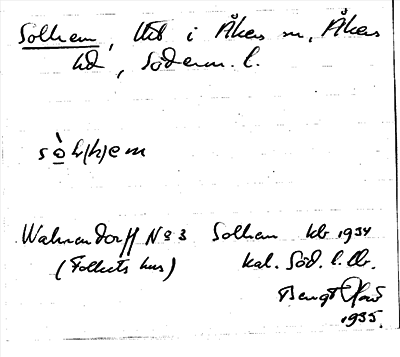 Solhem, lht i Åkers sn, Åkers
hd, Söderm. l.
sòl(h)em
Wahrendorff No 3 Solhem kb 1934
(Folkets hus) kal. Söd. l. tb.
Bengt
1935.